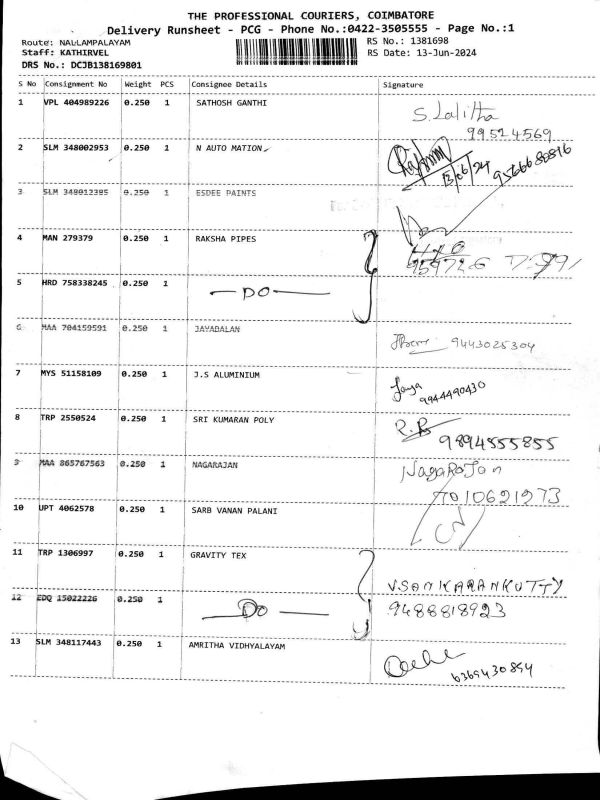 THE PROFESSIONAL COURIERS, COIMBATORE
Delivery Runsheet - PCG - Phone No.:0422-3505555 - Page No.:1
Route: NALLAMPALAYAM RS No.: 1381698
Staff: KATHIRVEL RS Date: 13-Jun-2024
DRS No.: DCJB138169801
S No Consignment No Weight PCS Consignee Details Signature
1 VPL 404989226 0.250 1 SATHOSH GANTHI S. Lalitha
99524569
2 SLM 348002953 0.250 1 N AUTO MATION
13/06/24 9566680816
3 SLM 348012385 0.250 1 ESDEE PAINTS
4 MAN 279379 0.250 1 RAKSHA PIPES
5 HRD 758338245 0.250 1 — DO —
6 MAA 704159591 0.250 1 JAYABALAN 9443025304
7 MYS 51158109 0.250 1 J.S ALUMINIUM Jaya
9944490430
8 TRP 2550524 0.250 1 SRI KUMARAN POLY
9894555855
9 MAA 865767563 0.250 1 NAGARAJAN NagaRaJan
7010621973
10 UPT 4062578 0.250 1 SARB VANAN PALANI
11 TRP 1306997 0.250 1 GRAVITY TEX
VSANKARANKUTTY
12 EDQ 15022226 0.250 1 — DO — 9488818923
13 SLM 348117443 0.250 1 AMRITHA VIDHYALAYAM
6369430894